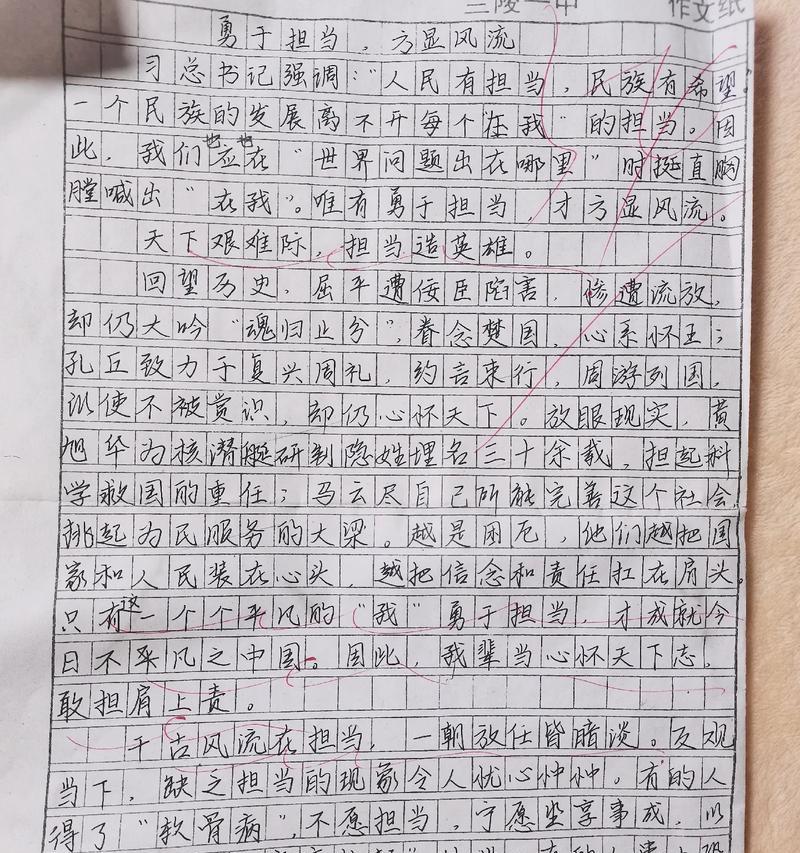 兰陵一中 作文纸
勇于担当，方显风流
习总书记强调："人民有担当，民族有希望。"
一个民族的发展离不开每个"在我"的担当。因
此，我们也应在"世界问题出在哪里"时挺直胸
膛喊出"在我"。唯有勇于担当，才方显风流。
天下艰难际，担当造英雄。
回望历史，屈平遭佞臣陷害，惨遭流放，
却仍大吟"魂归止兮"，眷念楚国，心系怀王；
孔丘致力于复兴周礼，约言束行，周游列国，
纵使不被赏识，却仍心怀天下。放眼现实，黄
旭华为核潜艇研制隐姓埋名三十余载，担起科
学救国的重任；马云尽自己所能完善这个社会
挑起为民服务的大梁。越是困厄，他们越把国
家和人民装在心头，越把信念和责任扛在肩头。
只有这一个个平凡的"我"勇于担当，才成就今
日不平凡之中国。因此，我辈当心怀天下志，
敢担肩上责。
千古风流在担当，一朝放任皆暗淡。反观
当下，缺乏担当的现象令人忧心忡忡。有的人
得了"软骨病"，不愿担当，宁愿坐享事成，以